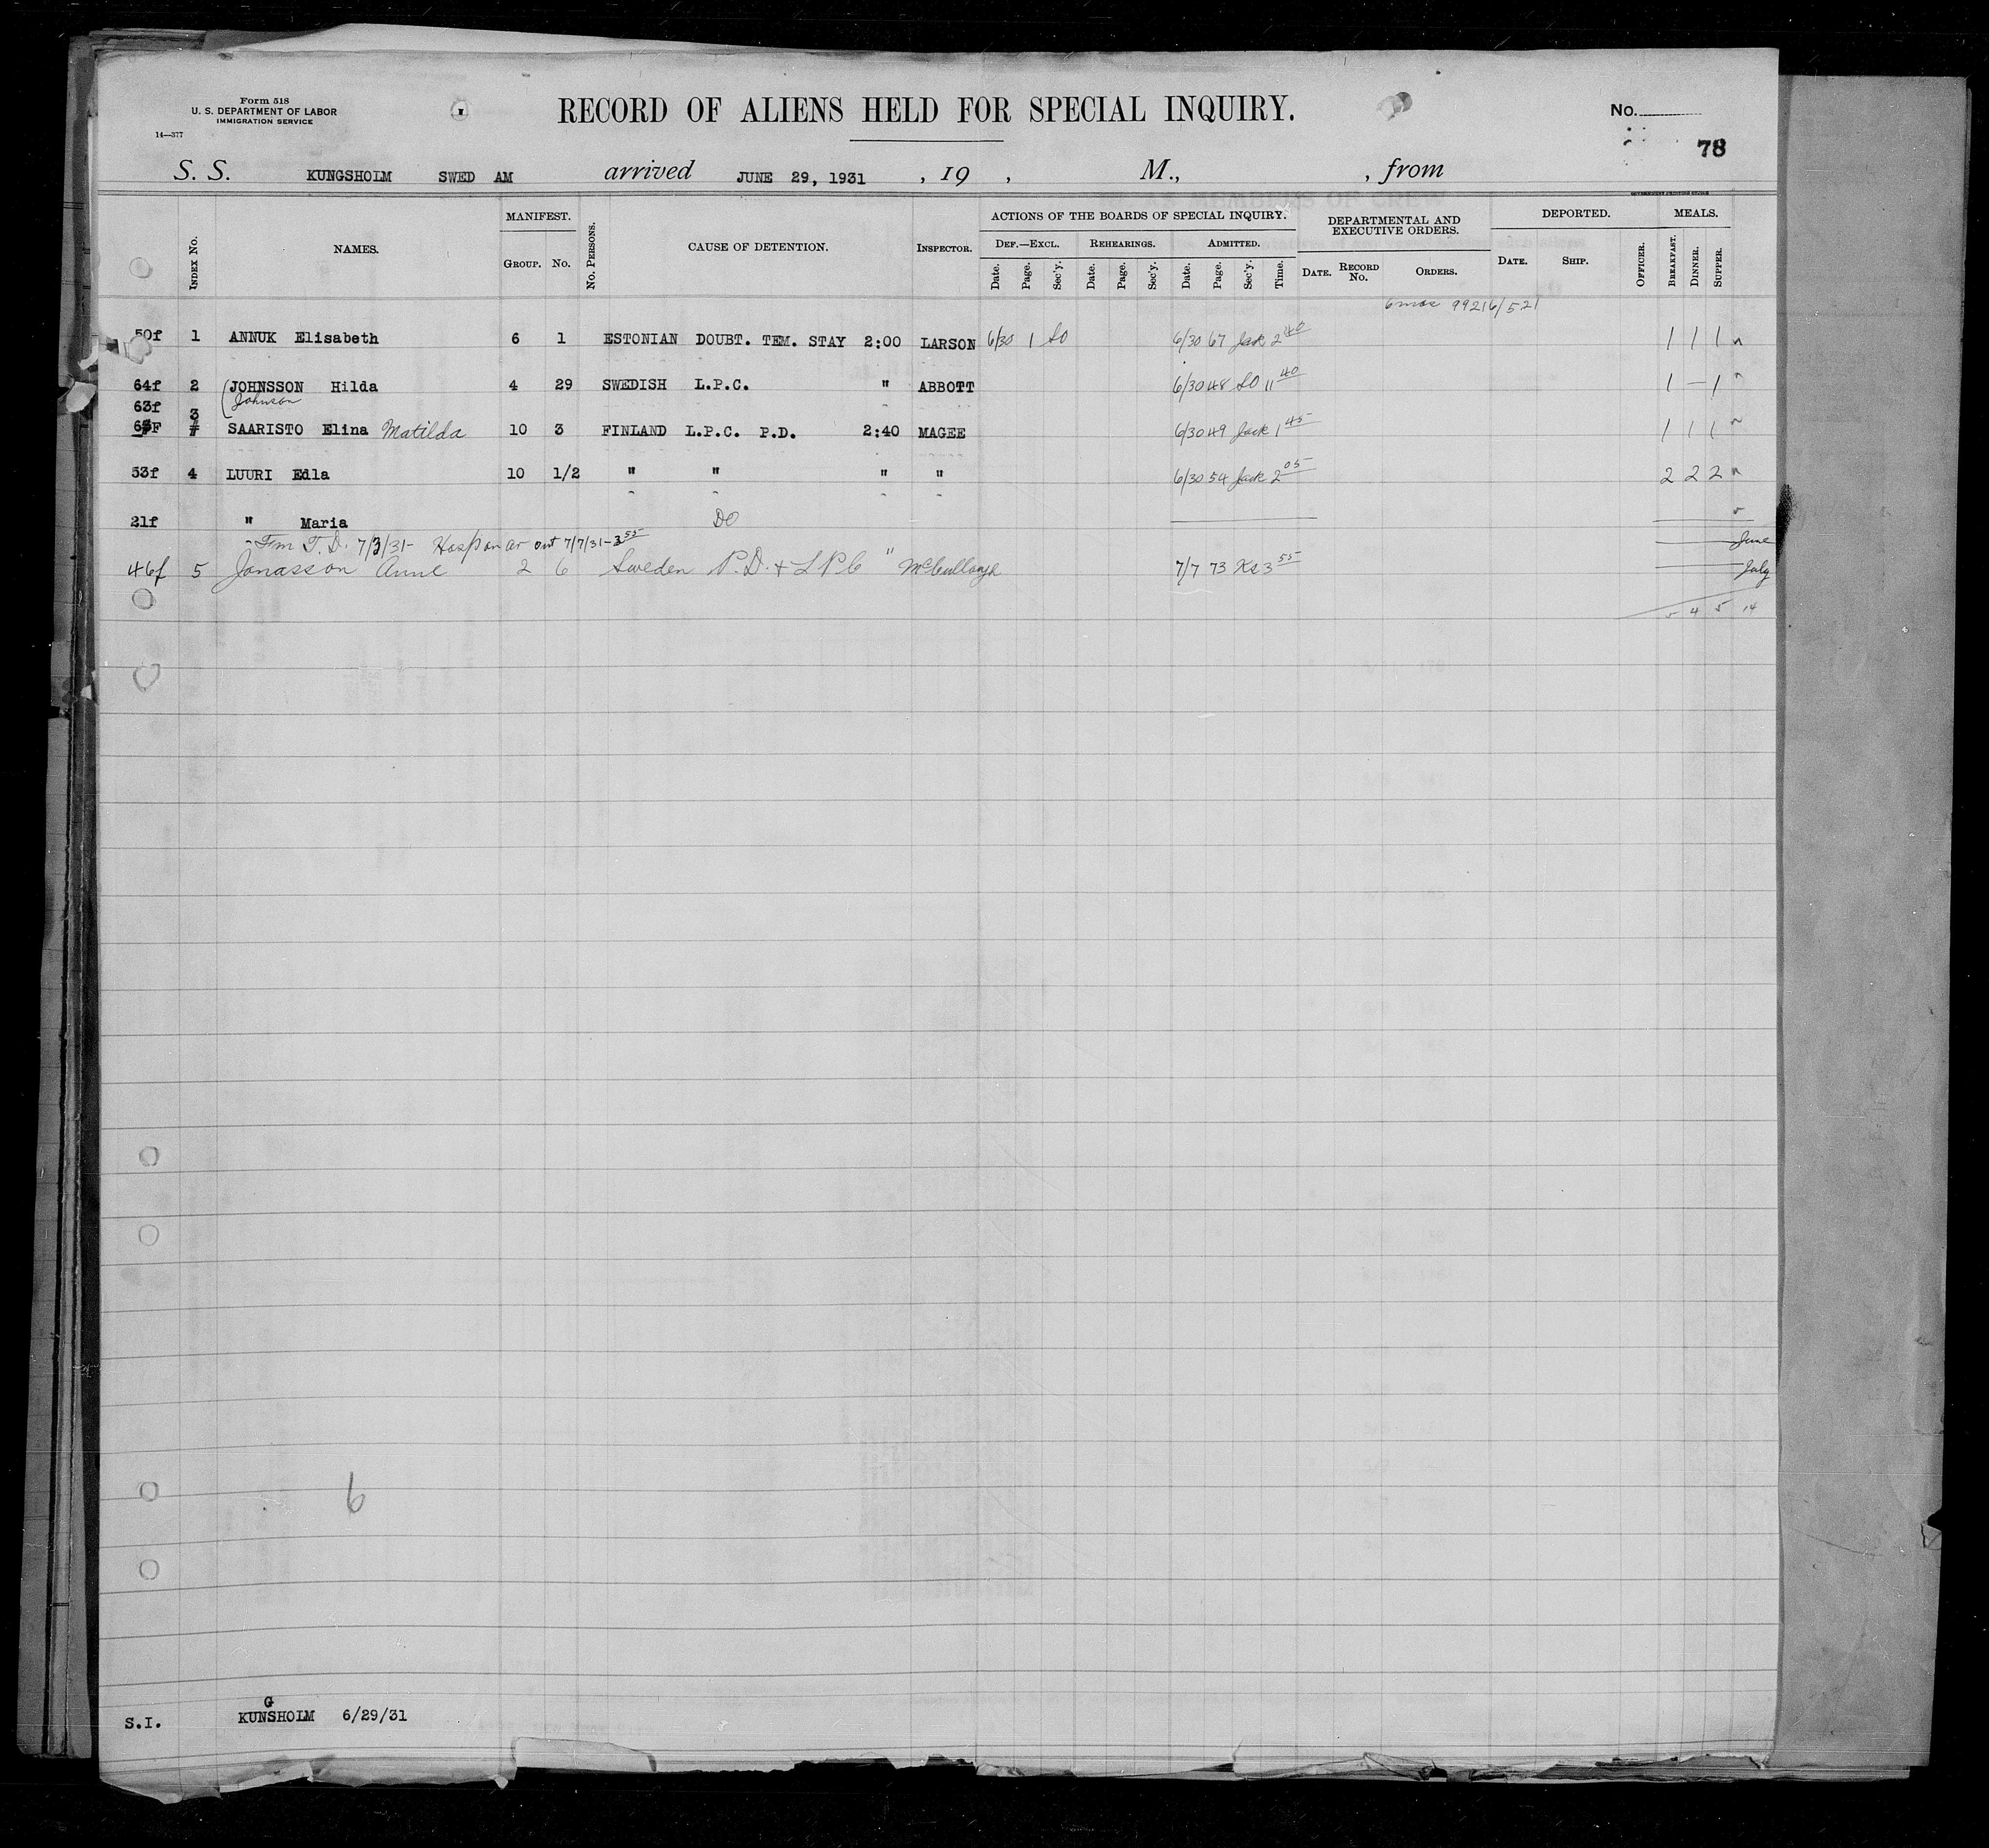 Form 518
U. S. DEPARTMENT OF LABOR
IMMIGRATION SERVICE
14—377
RECORD OF ALIENS HELD FOR SPECIAL INQUIRY.
No.
78
S. S. KUNGSHOLM SWED AM arrived JUNE 29, 1931 , 19 , M., , from
GOVERNMENT PRINTING OFFICE
INDEX No. NAMES. MANIFEST. GROUP. No. No. PERSONS. CAUSE OF DETENTION. INSPECTOR. ACTIONS OF THE BOARDS OF SPECIAL INQUIRY. DEF.—EXCL. Date. Page. Sec'y. REHEARINGS. Date. Page. Sec'y. ADMITTED. Date. Page. Sec'y. Time. DEPARTMENTAL AND EXECUTIVE ORDERS. DATE. RECORD No. ORDERS. DEPORTED. DATE. SHIP. OFFICER. MEALS. BREAKFAST. DINNER. SUPPER.
6 mos 99216/521
50f 1 ANNUK Elisabeth 6 1 ESTONIAN DOUBT. TEM. STAY 2:00 LARSON 6/30 1 SO 6/30 67 Jack 2 40 1 1 1
64f 2 JOHNSSON Hilda 4 29 SWEDISH L.P.C. " ABBOTT 6/30 48 SO 11 40 1 — 1
Johnson
63f 3
SAARISTO Elina Matilda 10 3 FINLAND L.P.C. P.D. 2:40 MAGEE 6/30 49 Jack 1 45 1 1 1
53f 4 LUURI Edla 10 1/2 " " " " 6/30 54 Jack 2 05 2 2 2
21f " Maria DO
Fm T. D. 7/3/31- Hosp on ar out 7/7/31-3 55 June
46f 5 Jonasson Anne 2 6 Sweden P.D. + L P C " McCullough 7/7 73 3 55 July
5 4 5 14
6
G
S.I. KUNSHOLM 6/29/31